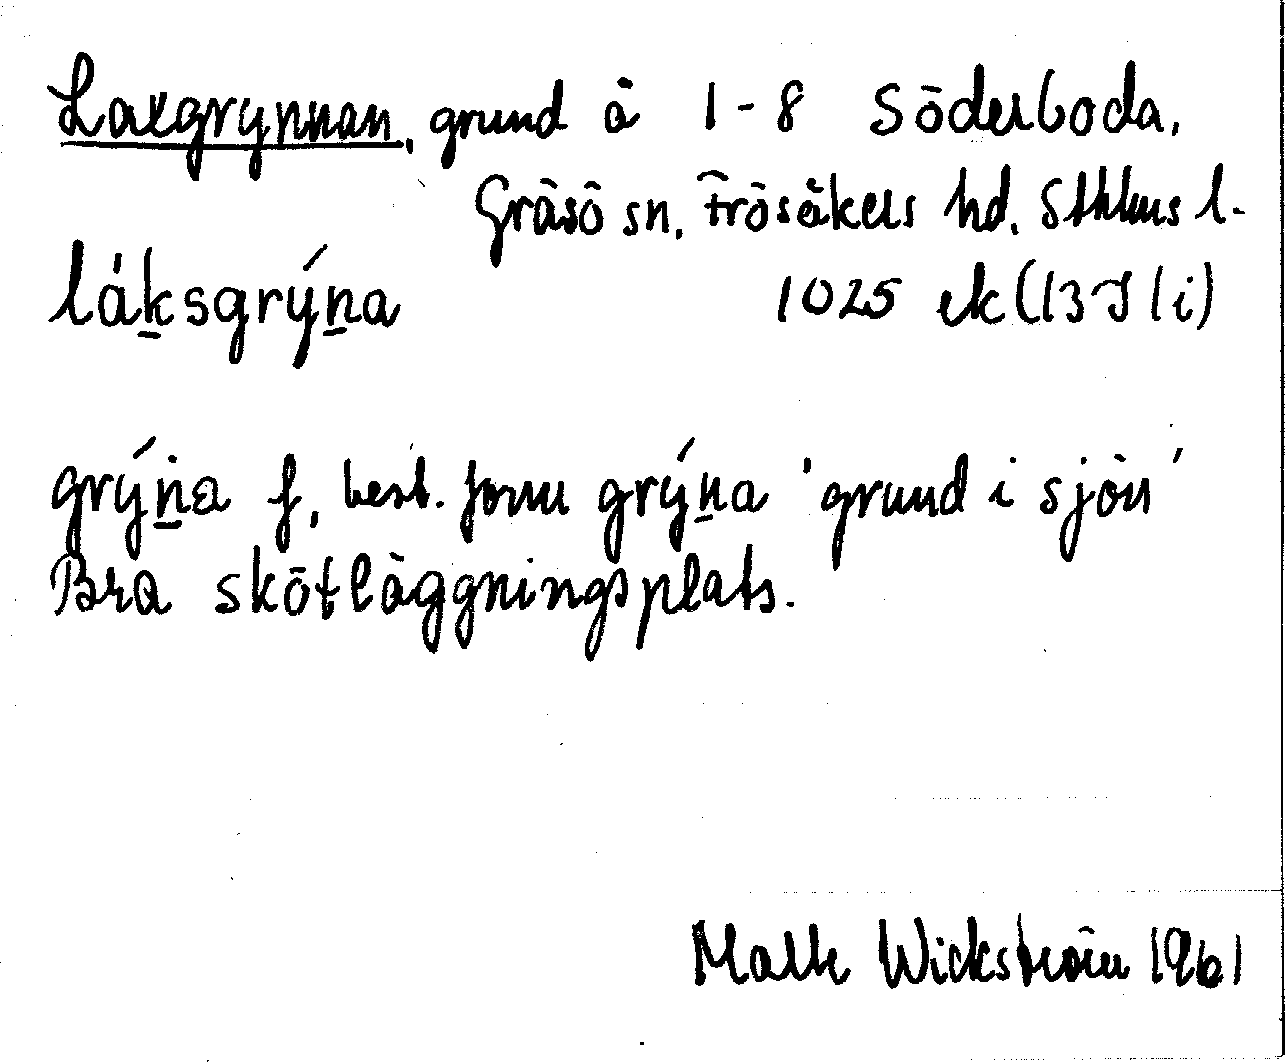 Laxgrynnan, grund å 1-8 Söderboda,
Gräsö sn, Frösåkers hd, Sthlms l.
láksgrýna 1025 ek (13 I 1i)
grýna f, best. form grýna 'grund i sjön'
Bra skötläggningsplats.
Malte Wickström 1961